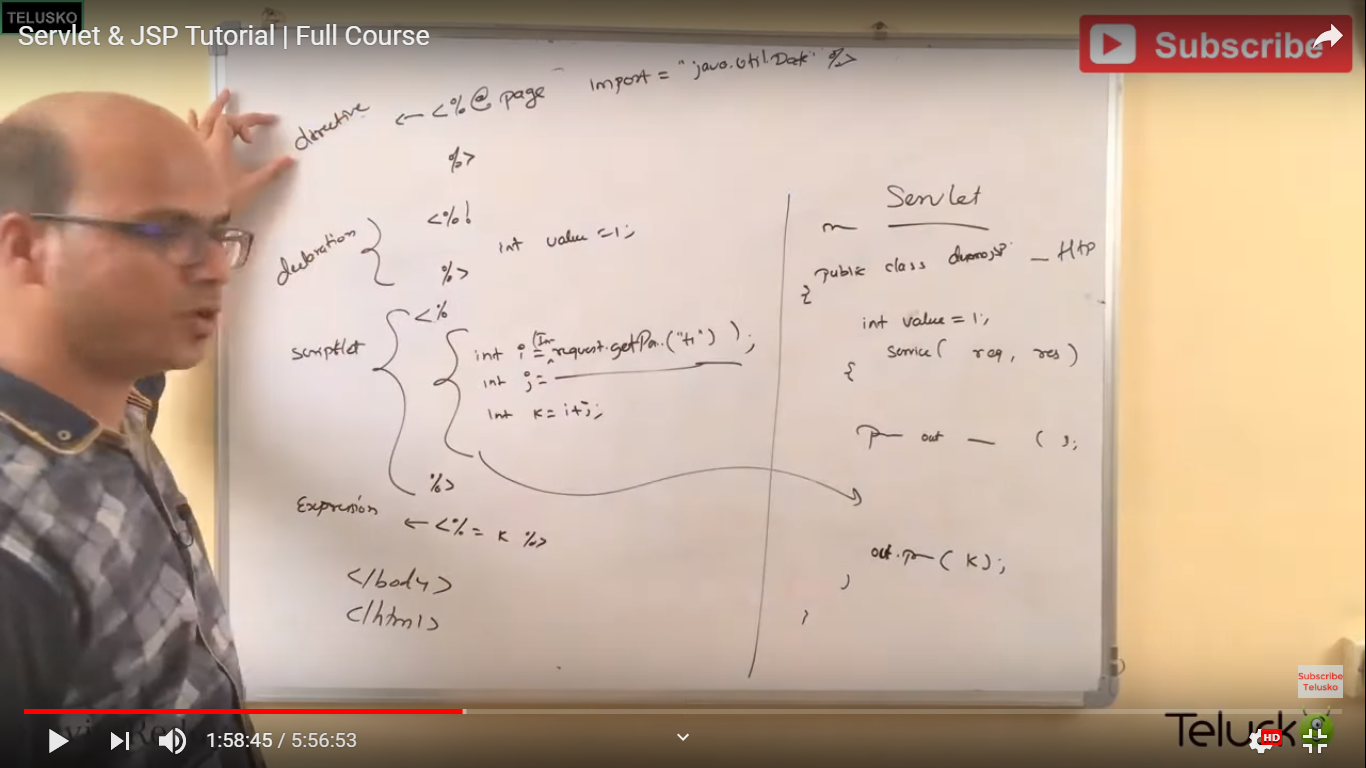 TELUSKO
Servlet & JSP Tutorial | Full Course
Subscribe
directive ← <%@ page import = "java.util.Date" %>
%>
declaration <%!
int value =1;
%>
scriptlet <%
int i = (In request.getPa..("t1") );
int j =
int k = i+j;
%>
Expression ← <%= K %>
</body>
</html>
Servlet
public class demojsp — Http
{
int value = 1;
service( req, res)
{
out ( );
out.p ( K);
}
}
Subscribe
Telusko
Telusko
1:58:45 / 5:56:53
HD